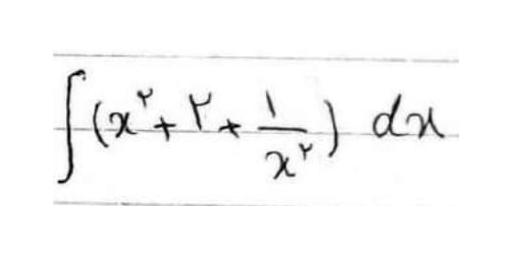 ∫(x^۲ + ۲ + ۱/x^۲) dx